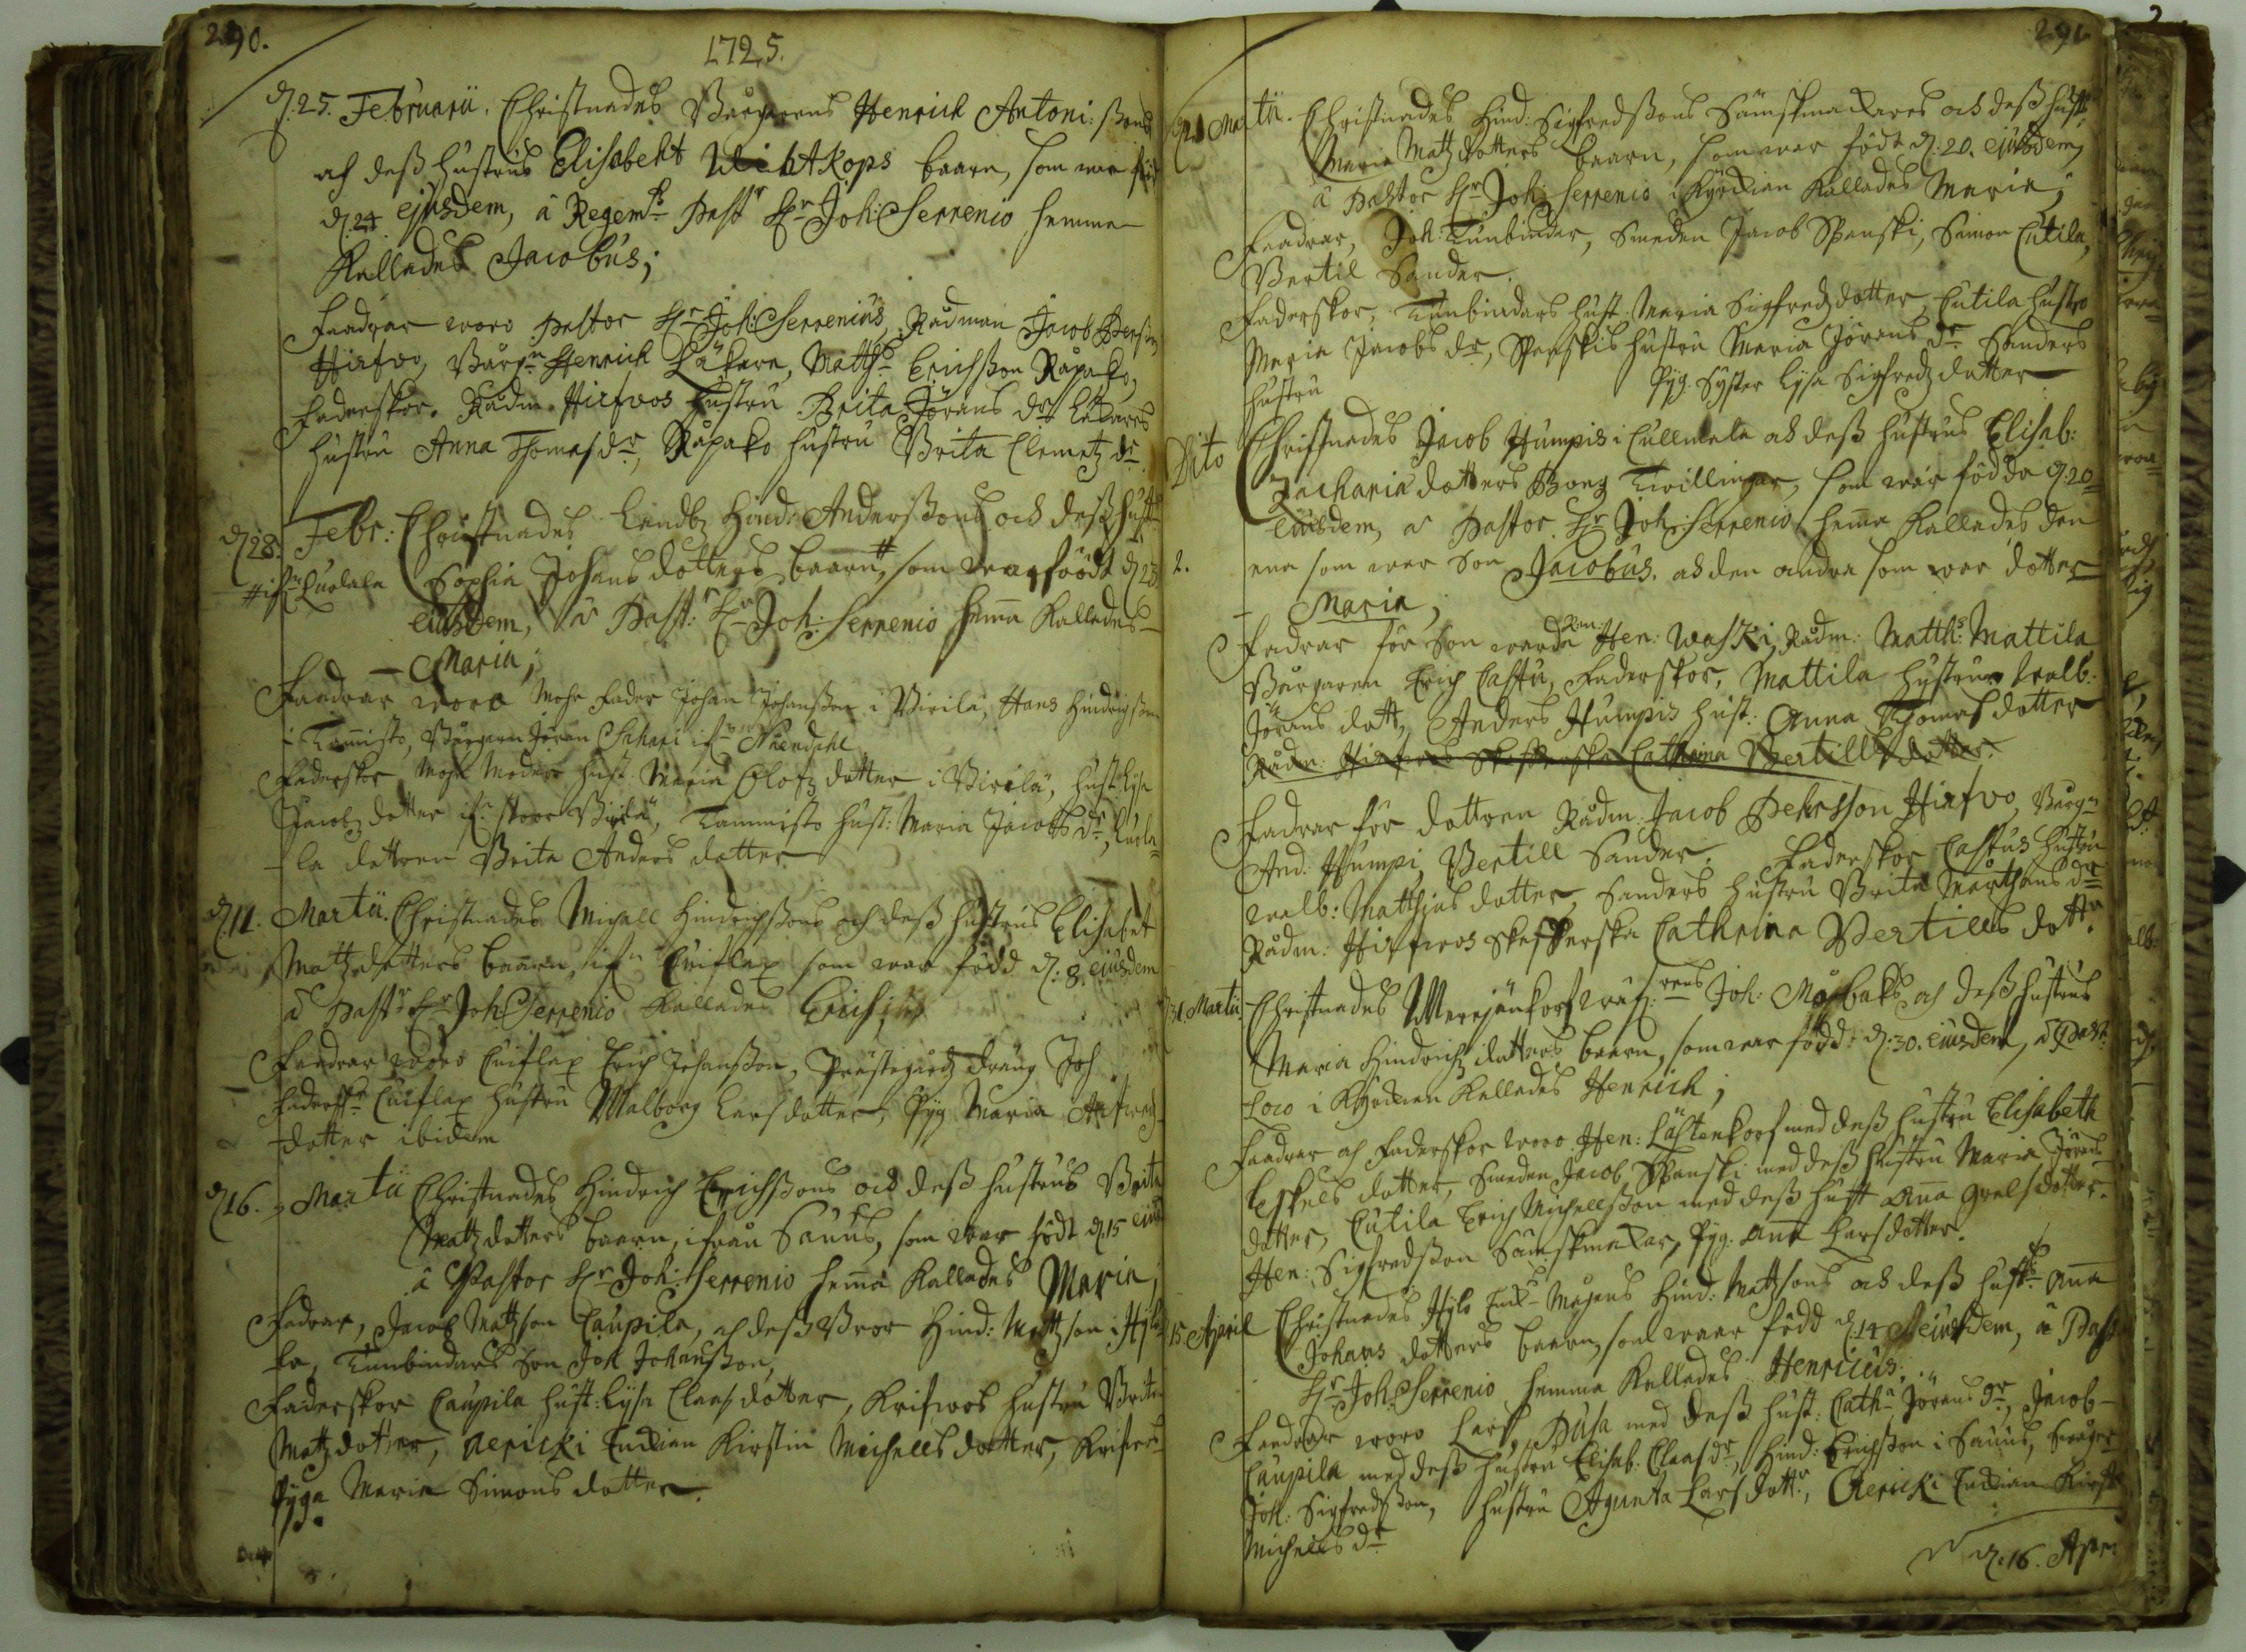 290.
1725.
d. 25. Februarii. Christnades Bårgarens Henrich Antoni: ßons
och deß hustrus Elisabeht Wihtkops baarn, som war
d. 24 ejusdem, â Regemts Past Hr Joh: Serrenio hemma
Kallades Jacobus;
Faadrar woro Pastor Hr Joh: Serrenius, Rådman Jacob
Hirfwo, Bårgn Henrich Läkare, Matths Erichßon Råpako,
Faderskor. Rådm. Hirfwos hustru Brita Jörans dr Läkares
hustru Anna Thomas dr, Råpako hustru Brita Clemetz dr
d. 28. Febr: Christnades Landb Hind: Anderßons och deß hust
Sophia Johans dotters baarn, # som war föödt d 23
# ifn Curlala
eiusdem, â Past: Hr Joh: Serrenio hema Kallades
Maria;
Faadrar woro Mohr Fader Johan Johanßon i Virilä, Hans Hindrichßon
i Tamisto, Bårgaren Jöran Sahari if Nåendahl
Faderskor Mohr Moder hust Maria Olofz dotter i Virilä, hust: Lysa
Jacobz dotter if: stoor Virilä, Tammisto hust: Maria Jacobs dr, Curla-
la dottren Brita Anders dotter
d. 11. Martii. Christnades Michell Hindrichßons och deß hustrus Elisabet
Matzdotters baarn, ifn Cuiflax som war född d. 8. eiusdem
â Pastr Hr Joh: Serrenio Kallades Erich;
Faadrar woro Cuiflax Erich Johanßon, Prästegårdz dräng Joh
Faderskr Cuiflax hustru Walborg Lars dotter, Pyg Maria
dotter ibidem
d. 16. Martii Christnades Hindrich Erichßons och deß hustrus Brita
Matz dotters baarn, ifrån Sauus, som war födt d. 15 eius
â Pastor Hr Joh: Serrenio hema Kallades Maria,
Fadrar, Jacob Matzson Caupila, och deß Bror Hind: Matzson i
Tunbindars Son Joh Johanßon,
Faderskor Caupila hust: Lysa Claas dotter, Krifwos hustru Brita
Matz dotter, Aericki Enckian Kirstin Michells dotter,
Pyga Maria Simons dotter.
291
d. 21 Martii. Christnades Hind: Sigfredßons Sämskmackares och deß hust
Maria Matz dotters baarn, som war födt d: 20. eiusdem,
â Pastor Hr Joh: Serrenio i Kyrkian Kallades Maria;
Faadrar, Joh: Tunbindar, Smeden Jacob Spanski, Simon Cutila,
Bertil Sander.
Faderskor, Tunbindars hust Maria Sigfredz dotter, Cutila hustro
Maria Jacobs dr, Spanskis hustru Maria Jörans dr Sanders
hustru Pyg. Syster Lysa Sigfredz dotter
Dito Christnades Jacob Humpis i Cullmala och deß hustrus Elisab:
Zachariæ dotters Twillingar, som war födda d. 20
eiusdem, â Pastor Hr Joh: Serrenio hema Kallades den
2. ena som war Son Jacobus. och den andra som war dotter
Maria,
Fadrar för Son warda Hen: Waski, Rådm: Matths: Mattila
Bårgaren Erich Castu, Faderskor, Mattila hustru Walb:
Jörans dott, Anders Humpis hust: Anna Thomas dotter
Rådm: Hirfwos Cathrina Bertills dotter.
Fadrar för dottren Rådm: Jacob Pehrsson Hirfwo, Bårgn
And: Humpi, Bertill Sander. Faderskor Castus hustru
Walb: Matthias dotter, Sanders hustru Brita Mårthens dr
Rådm: Hirfwos Cathrina Bertills dottr
31. Martii Christnades Joh: och deß hustrus
Maria Hindrichz dotters baarn, som war född: d. 30. eiusdem, â Past:
Loco i Kyrckian Kallades Henrich;
Faadrar och Faderskor woro Hen: Lästenkorf med deß hustru Elisabeth
Eskels dotter, Smeden Jacob Spanski med deß hustru Maria Jörans
dotter, Cutila Erich Michellßon med deß hust Ana Grels dotter.
Hen: Sigfredßon Sämskmackar, Pyg. Ana Lars dotter.
15 April Christnades Hind: Matsons och deß hust: Ana
Johans dotters baarn, som waar född d. 14 eiusdem, â Past
Hr Joh: Serrenio hemma Kallades Henricus;
Faadrar woro Lars Pusa med deß hust: Catha Jörans dr, Jacob
Caupila med deß hustru Elisab: Claas dr, Hind: Erichßon i Sauus, Swåger
Joh: Sigfredßon, hustru Agneta Lars dottr, Aericki Enckian Kirst
Michells dr
d. 16. Apr: